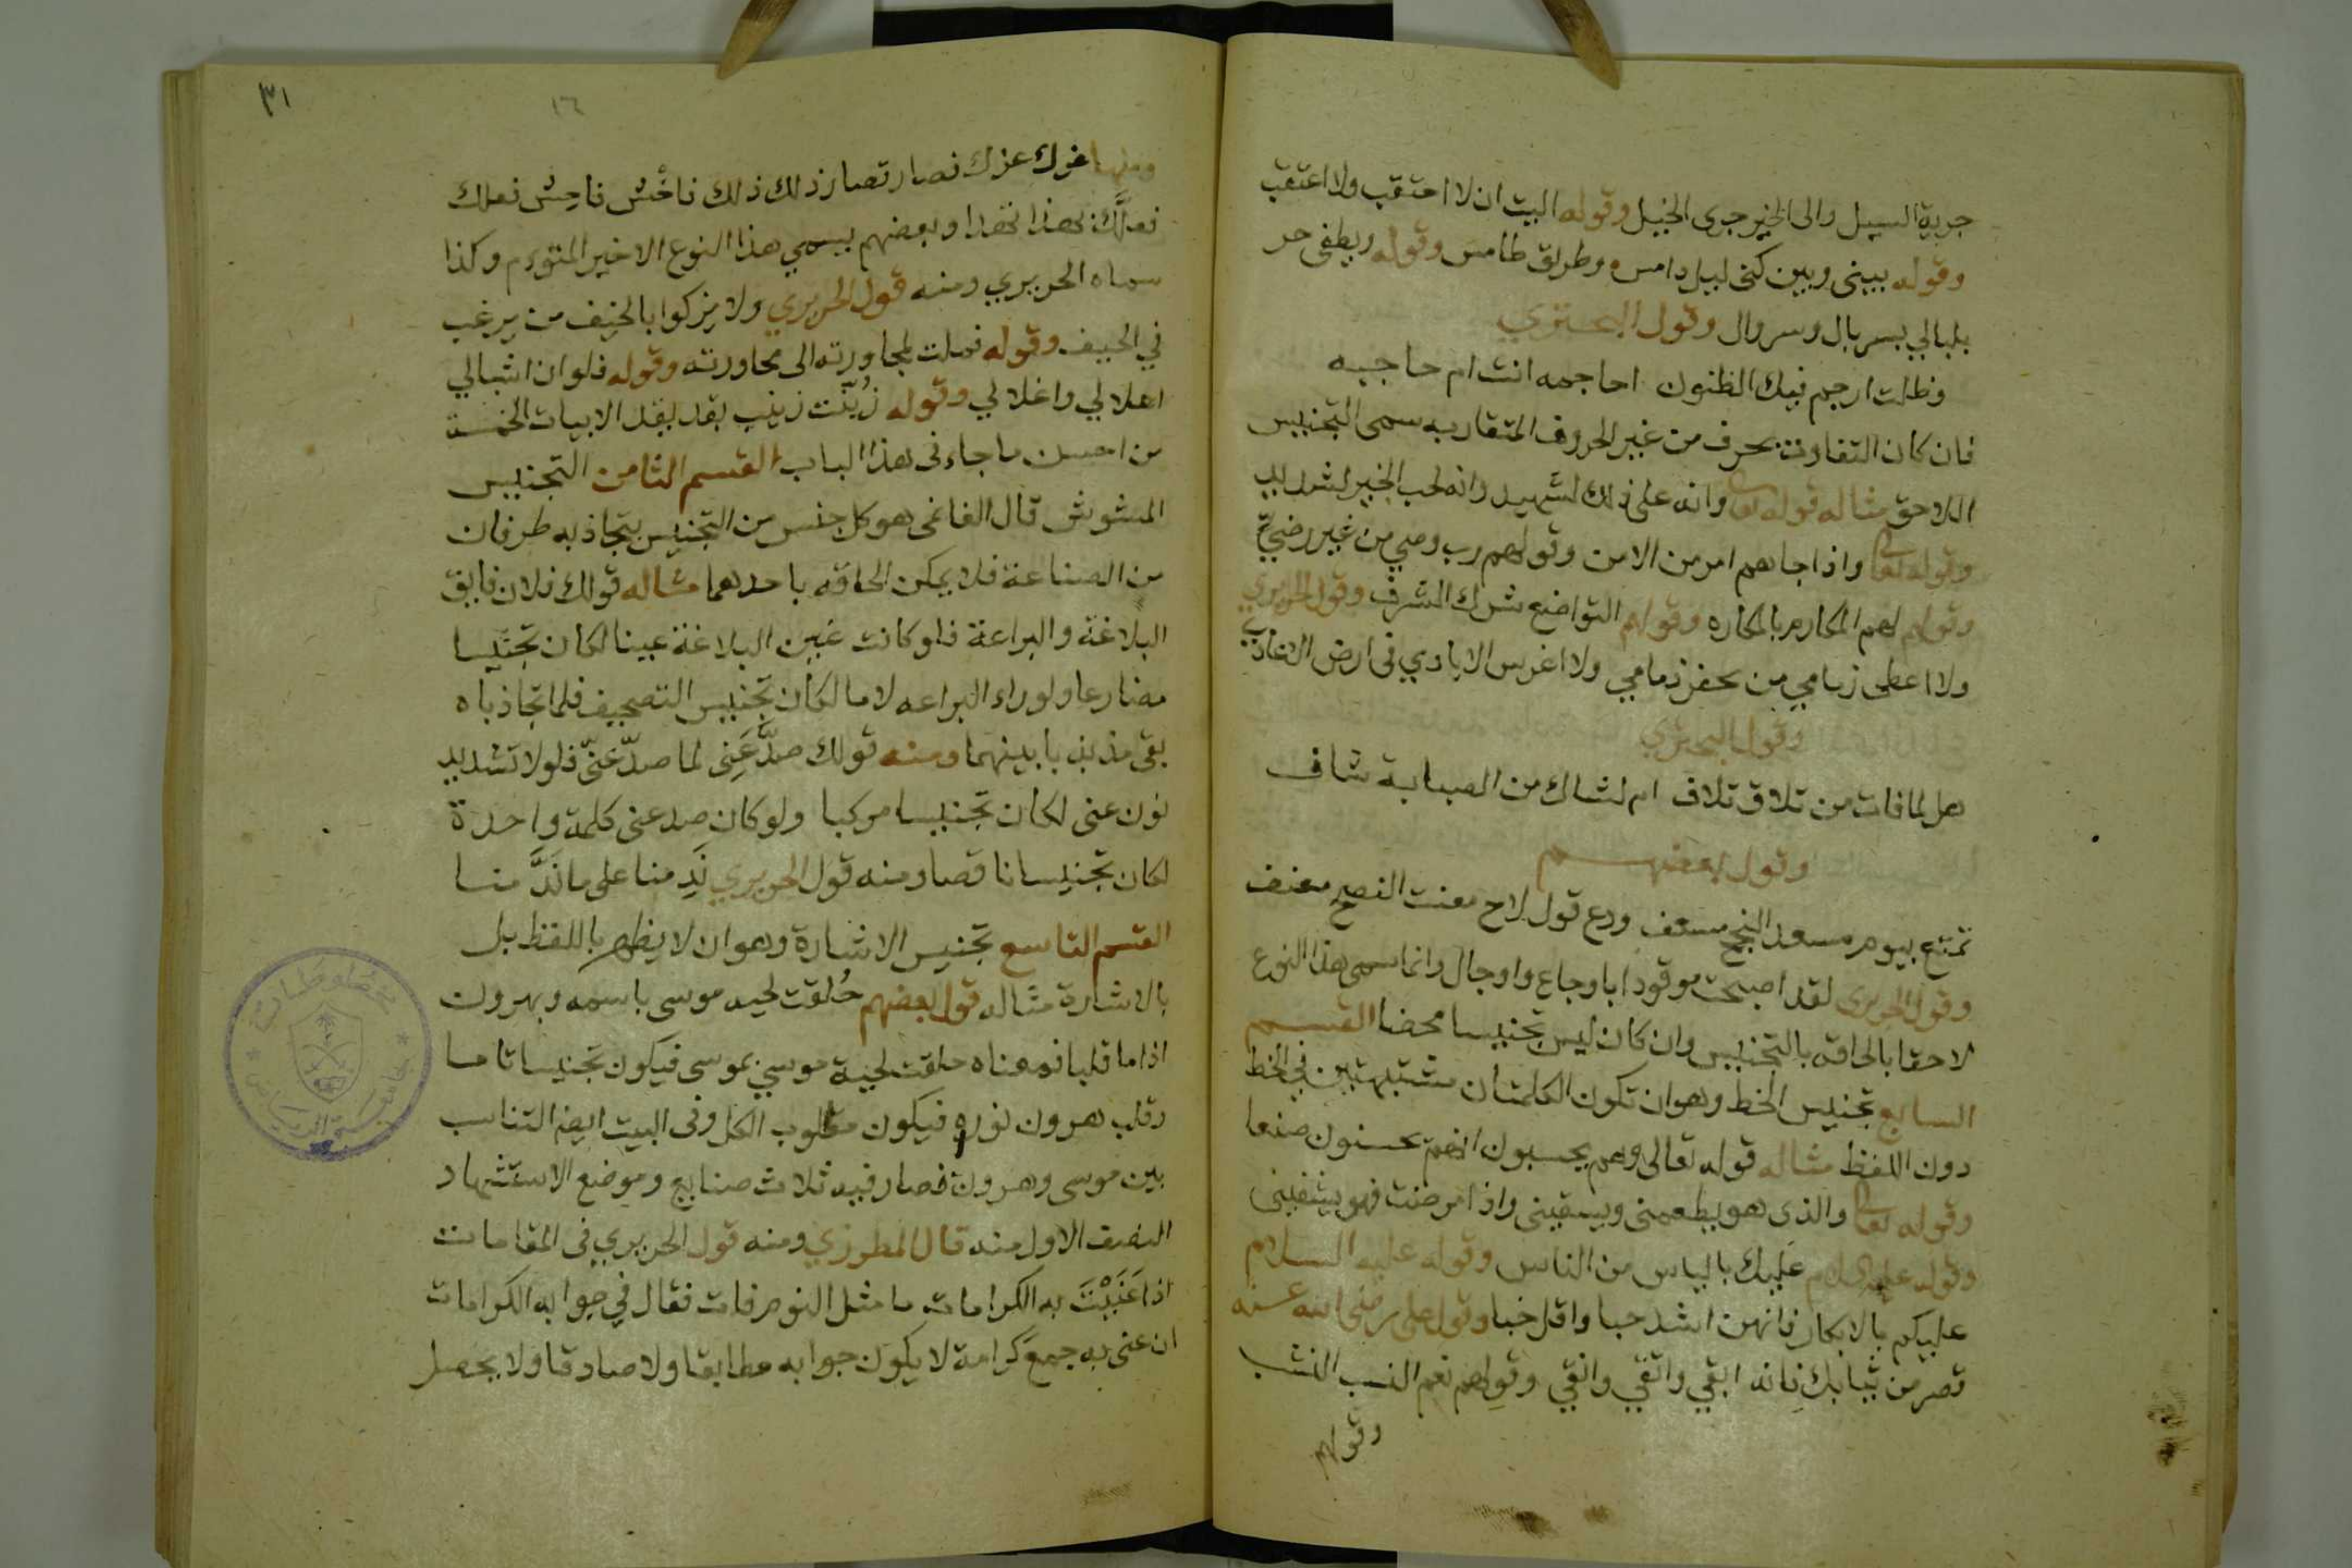 جرية السيل والى الخير جرى الخيل وقوله البيت ان لا احتقب ولا اعتقب
وقوله بينى وبين كنى ليل دامس وطريق طامس وقوله ويطفى حر
بلبالي بسربال وسروال وقول البحتري
وظلت ارجم فيك الظنون احاجمه انت ام حاجبه
فان كان التفاوت بحرف من غير الحروف المتقاربه سمى التجنيس
اللاحق مثاله قوله تعالى وانه على ذلك لشهيد وانه لحب الخير لشديد
وقوله تعالى واذا جاهم امر من الامن وقولهم رب وضي من غير رضيّ
وقولهم لهم المكارم بالمكاره وقولهم التواضع شرك الشرف وقول الحريري
ولا اعطى زمامي من يخفر ذمامي ولا اغرس الايادي فى ارض الاعادي
وقول البحتري
هل لمافات من تلاق تلاف ام لشاك من الصبابة شاف
وقول بعضهم
تمتع بيوم مسعد النجح مسعف ودع قول لاح معنت النصح معنف
وقول الحريرى لقد اصبحت موقودا باوجاع واوجال وانما سمى هذا النوع
لاحقا بالحاقه بالتجنيس وان كان ليس تجنيسا محضا القسم
السابع تجنيس الخط وهو ان تكون الكلمتان مشتبهتين في الخط
دون اللفظ مثاله قوله تعالى وهم يحسبون انهم يحسنون صنعا
وقوله تعالى والذى هو يطعمنى ويسقينى واذا مرضت فهو يشفينى
وقوله عليه السلام عليك بالياس من الناس وقوله عليه السلام
عليكم بالابكار فانهن اشد حبا واقل خبا وقول على رضى الله عنه
قصر من ثيابك فانه ابقي واتقي وانقي وقولهم نعم النسب النشب
وقولهم
٣١
١٦
ومنها غرك عزك فصار قصار ذلك ذلك فاخش فاحش فعلك
فعلَّك بهذا تهدا وبعضهم يسمي هذا النوع الاخير المتوءم وكذا
سماه الحريري ومنه قول الحريري ولا يزكوا بالخيف من يرغب
في الحيف وقوله فملت لمجاورته الى محاورته وقوله فلوان اشبالي
اعلالي واغلالي وقوله زُيّنت زينب بقد يقد الابيات الخمسة
من احسن ما جاء فى هذا الباب القسم الثامن التجنيس
المشوش قال الغانمى هو كل جنس من التجنيس يتجاذبه طرفان
من الصناعة فلا يمكن الحاقه باحدهما مثاله قولك فلان فايق
البلاغة والبراعة فلو كانت غين البلاغة عينا لكان تجنيسا
مضارعا ولو راء البراعه لاما لكان تجنيس التصحيف فلما تجاذباه
بقى مذبذبا بينهما ومنه قولك صدَّ عَنِى لما صدّ عنّى فلولا تشديد
نون عنى لكان تجنيسا مركبا ولو كان صد عنى كلمة واحدة
لكان تجنيسا ناقصا ومنه قول الحريري نَدِمنا على ما نَدَّ منا
القسم التاسع تجنيس الاشارة وهو ان لا يظهر باللفظ بل
بالاشارة مثاله قول بعضهم حُلقت لحيه موسى باسمه وبهرون
اذا ما قلبا فمعناه حلقت لحية موسي بموسى فيكون تجنيسا تاما
وقلب هرون نوره فيكون مقلوب الكل وفى البيت ايضا التناسب
بين موسى وهرون فصار فيه ثلاث صنايع وموضع الاستشهاد
النصف الاول منه قال المطرزي ومنه قول الحريري فى المقامات
اذا عَنَيْتَ به الكرامات ما مثل النوم فات فقال في جوابه الكرامات
ان عنى به جمع كرامة لا يكون جوابه مطابقا ولا صادقا ولا يحصل